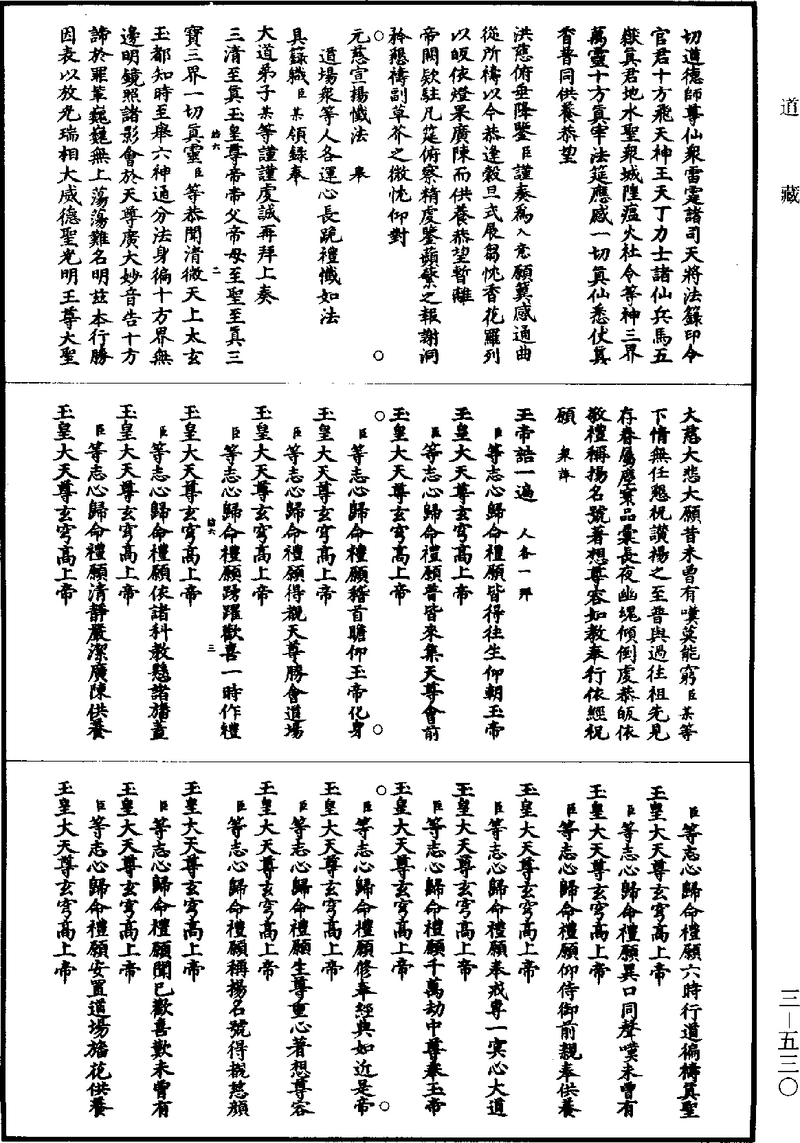 道藏
切道德師尊仙衆雷霆諸司天將法籙印令
官君十方飛天神王天丁力士諸仙兵馬五
嶽真君地水聖衆城隍瘟火社令等神三界
萬靈十方真宰法筵應感一切真仙悉仗真
香普同供養恭望
洪慈俯垂降鑒臣謹奏爲入意願冀感通曲
從所禱以今恭逢穀旦式展芻忱香花羅列
以皈依燈果廣陳而供養恭望暫離
帝闕欵駐凡筵俯察精虔鑒蘋蘩之報謝洞
矜懇禱副草芥之微忱仰對
元慈宣揚懺法 舉
道場衆等人各運心長跪禮懺如法
具籙職臣某領錄奉
大道弟子某等謹謹虔誠再拜上奏
三清至真玉皇尊帝帝父帝母至聖至真三
拾六 二
寶三界一切真靈臣等恭聞清微天上太玄
玉都知時至舉六神通分法身徧十方界無
邊明鏡照諸影會於天尊廣大妙音告十方
諦於羅華巍巍無上蕩蕩難名明茲本行勝
因表以放光瑞相大威德聖光明王尊大聖
大慈大悲大願昔未曾有嘆莫能窮臣某等
下情無任懇祝讚揚之至普與過往祖先見
存眷屬塵寰品彙長夜幽魂傾倒虔恭皈依
敬禮稱揚名號著想尊容如教奉行依經祝
願 衆詳
玉帝誥一遍 人各一拜
臣等志心歸命禮願皆得往生仰朝玉帝
玉皇大天尊玄穹高上帝
臣等志心歸命禮願普皆來集天尊會前
玉皇大天尊玄穹高上帝
臣等志心歸命禮願稽首瞻仰玉帝化身
玉皇大天尊玄穹高上帝
臣等志心歸命禮願得覩天尊勝會道場
玉皇大天尊玄穹高上帝
臣等志心歸命禮願踴躍歡喜一時作禮
拾六 三
玉皇大天尊玄穹高上帝
臣等志心歸命禮願依諸科教懸諸旛蓋
玉皇大天尊玄穹高上帝
臣等志心歸命禮願清靜嚴潔廣陳供養
玉皇大天尊玄穹高上帝
臣等志心歸命禮願六時行道徧禱真聖
玉皇大天尊玄穹高上帝
臣等志心歸命禮願異口同聲嘆未曾有
玉皇大天尊玄穹高上帝
臣等志心歸命禮願仰侍御前親奉供養
玉皇大天尊玄穹高上帝
臣等志心歸命禮願奉戒專一冥心大道
玉皇大天尊玄穹高上帝
臣等志心歸命禮願千萬劫中尊奉玉帝
玉皇大天尊玄穹高上帝
臣等志心歸命禮願修奉經典如近是帝
玉皇大天尊玄穹高上帝
臣等志心歸命禮願生尊重心著想尊容
玉皇大天尊玄穹高上帝
臣等志心歸命禮願稱揚名號得覩慈顔
玉皇大天尊玄穹高上帝
臣等志心歸命禮願聞已歡喜歎未曾有
玉皇大天尊玄穹高上帝
臣等志心歸命禮願安置道場旛花供養
玉皇大天尊玄穹高上帝
三—五三〇